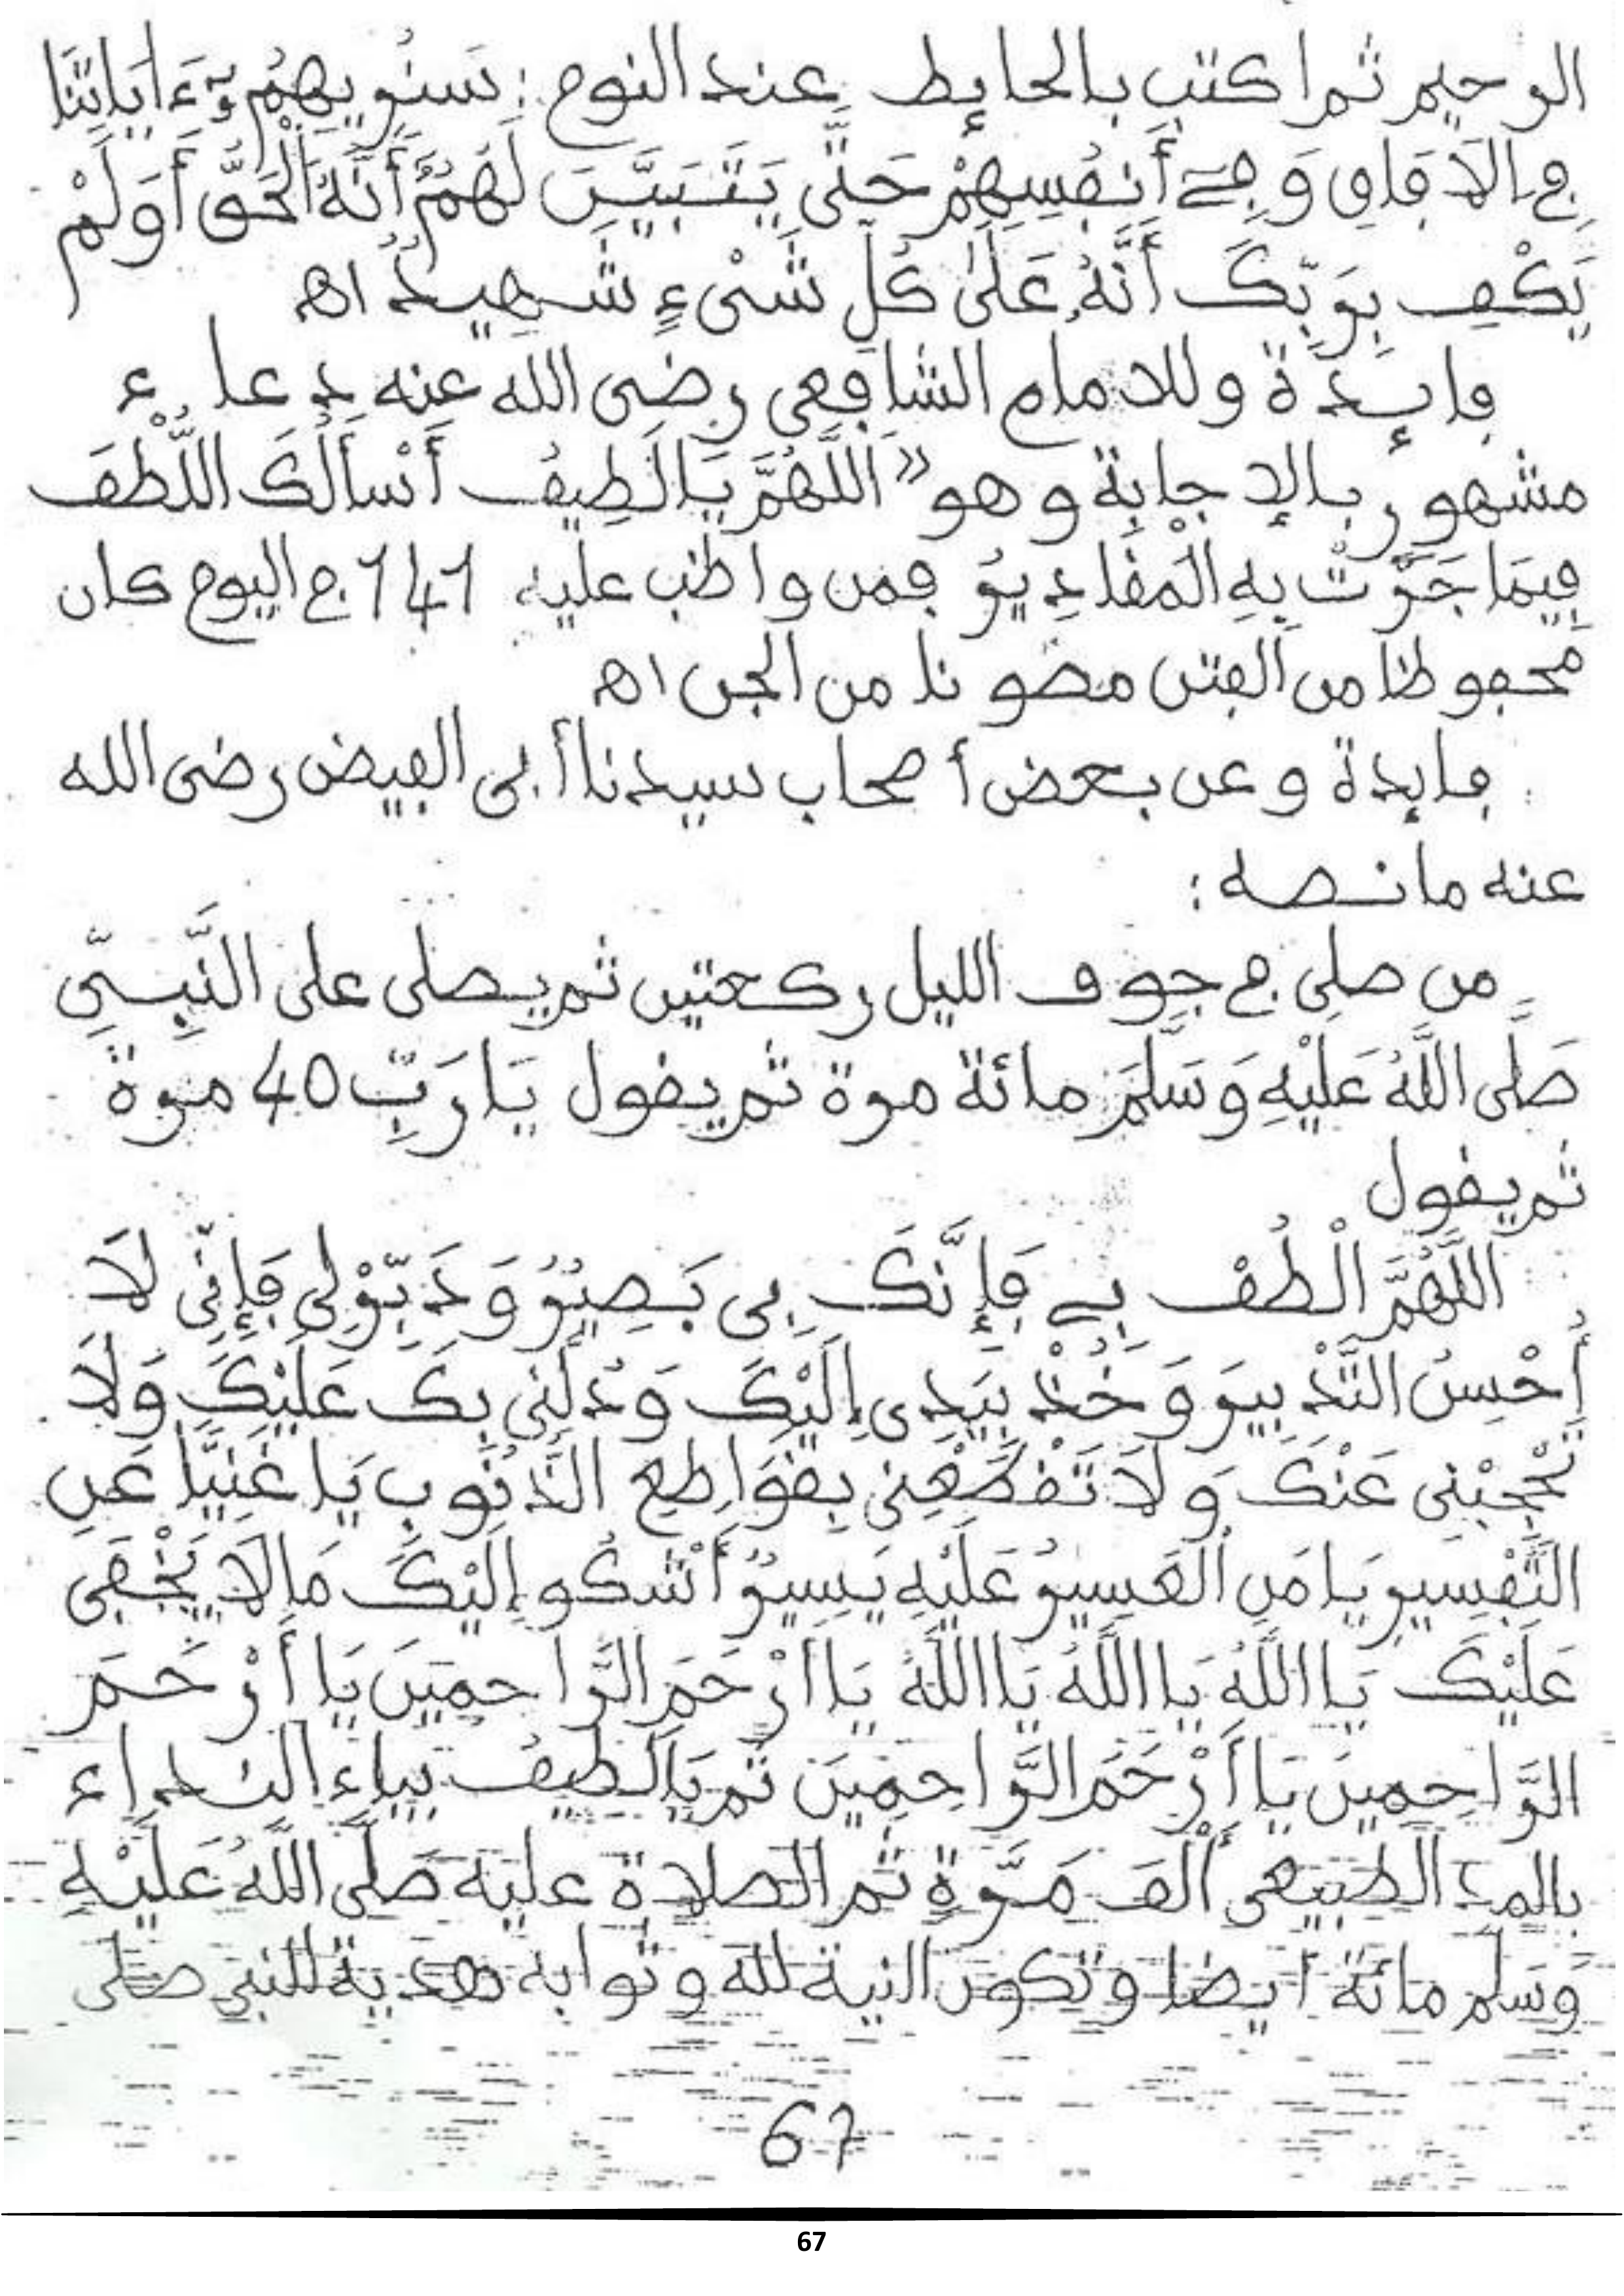 الرحيم ثم اكتب بالحايط عند النوم : سَنُرِيهِمُۥٓ ءَايَاتِنَا
فِى الَافَاقِ وَفِے أَنفُسِهِمْ حَتَّى يَتَبَيَّنَ لَهُمُۥٓ أَنَّهُ الْحَقُّ أَوَلَمْ
يَكْفِ بِرَبِّكَ أَنَّهُۥ عَلَىٰ كُلِّ شَىْءٍ شَهِيدٌ اه
فايدة وللامام الشافعي رضى الله عنه دعاء
مشهور بالإجابة وهو « اَللَّهُمَّ يَا لَطِيفُ أَسْأَلُكَ اللُّطْفَ
فِيمَا جَرَتْ بِهِ الْمَقَادِيرُ فمن واظب عليه 141 في اليوم كان
محفوظا من الفتن مصونا من الجن اه
فايدة وعن بعض أصحاب سيدنا أبى الفيض رضى الله
عنه ما نصه :
من صلى في جوف الليل ركعتين ثم يصلى على النَّبِيِّ
صَلَّى اللَّهُ عَلَيْهِ وَسَلَّمَ مائة مرة ثم يقول يَا رَبِّ 40 مرة
ثم يقول
اَللَّهُمَّ الْطُفْ بِے فَإِنَّكَ بِى بَصِيرٌ وَدَبِّرْ لِى فَإِنِّى لَا
أُحْسِنُ التَّدْبِيرَ وَخُذْ بِيَدِى إِلَيْكَ وَدُلَّنِى بِكَ عَلَيْكَ وَلَا
تَحْجُبْنِى عَنْكَ وَلَا تَقْطَعْنِى بِقَوَاطِعِ الذُّنُوبِ يَا غَنِيًّا عَنِ
التَّفْسِيرِ يَا مَنِ الْعَسِيرُ عَلَيْهِ يَسِيرٌ أَشْكُو إِلَيْكَ مَا لَا يَخْفَى
عَلَيْكَ يَا اللَّهُ يَا اللَّهُ يَا اللَّهُ يَا أَرْحَمَ الرَّاحِمِينَ يَا أَرْحَمَ
الرَّاحِمِينَ يَا أَرْحَمَ الرَّاحِمِينَ ثم يَا لَطِيفُ بياء النداء
بالمد الطبيعى أَلْفَ مَرَّةٍ ثم الصلاة عليه صَلَّى اللَّهُ عَلَيْهِ
وَسَلَّم مائة أيضا وتكون النية لله وثوابه هدية للنبي صلى
67
67